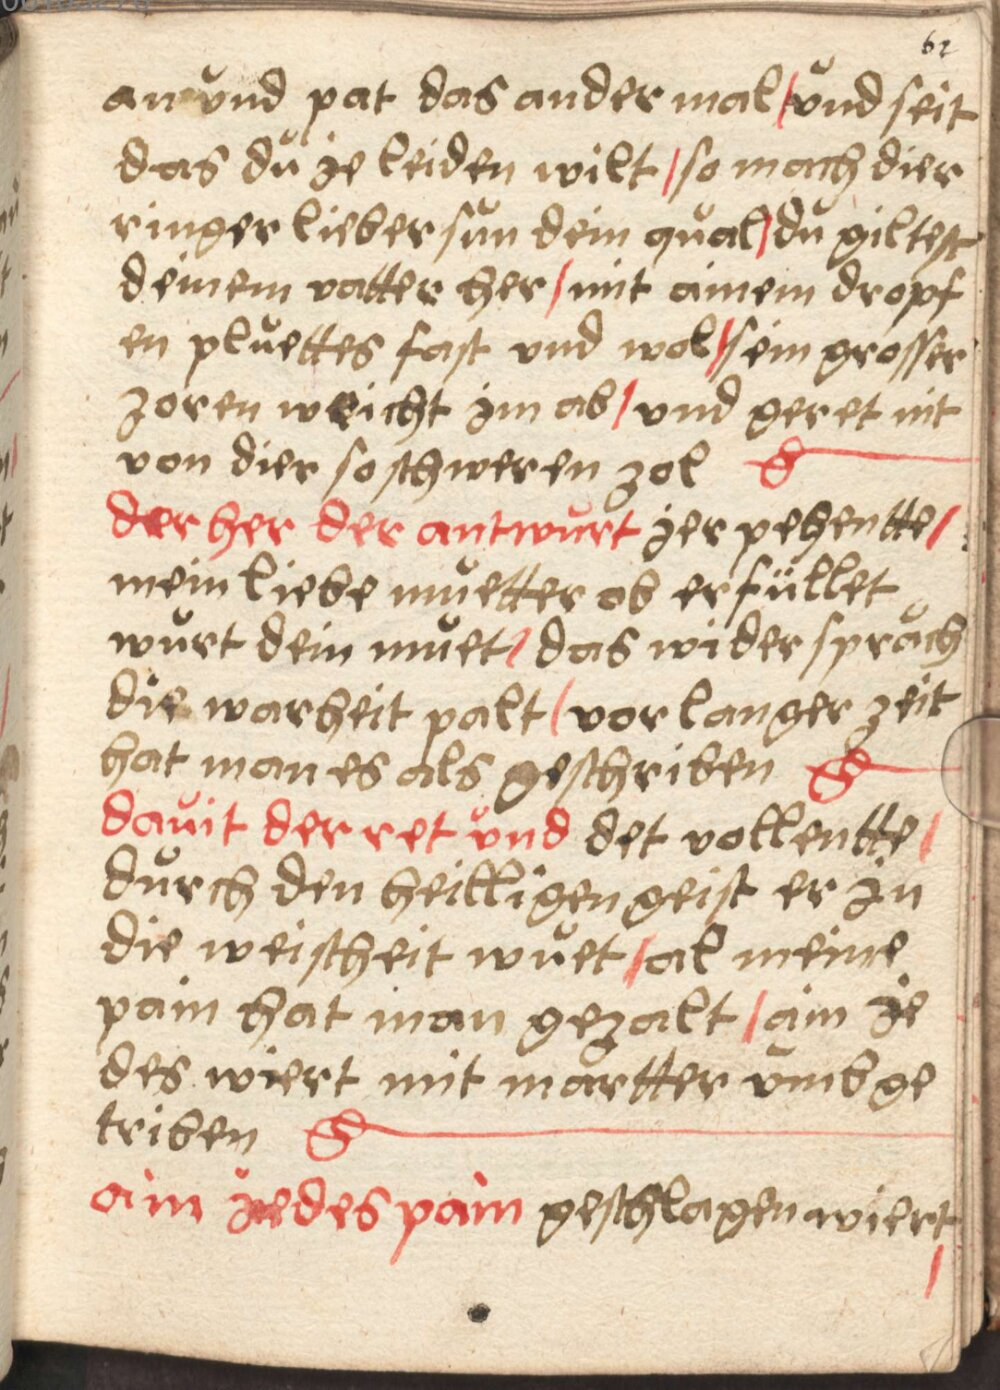 62
an vnd pat das ander mal / vnd seit
das dů je leiden wilt / so mach dier
ringer lieber sůn dein qůal / dů giltest
deinem vatter her / mit ainem dropf
en plůettes fast vnd wol / sein grosser
zoren weicht jm ab / vnd geret nit
von dier so schweren zol
der her der antwůrt jer pehentte /
mein liebe můetter ob erfüllet
wůrt dein můet / das wider spräch
die warheit palt / vor langer zeit
hat man es als geschriben
dauit der ret vnd det vollentte /
důrch den heilligen geist er jn
die weischeit wůet / al meine
pain hat man gezalt / ain je
des wiert mit martter vmb ge
triben
ain jedes pain geschlagen wiert
/